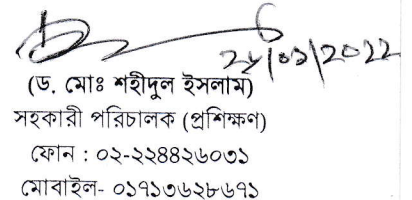 (ড. মোঃ শহীদুল ইসলাম)
সহকারী পরিচালক (প্রশিক্ষণ)
ফোন : ০২-২২৪৪২৬০৩১
মোবাইল- ০১৭১৩৬২৮৬৭১